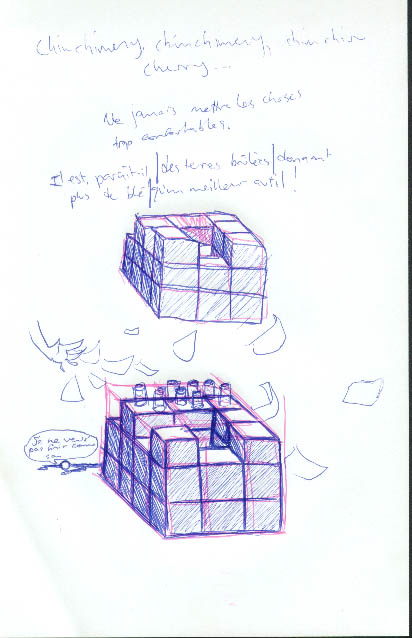 chimchimeny, chimchimeny, chim chim
cherry...
Ne jamais mettre les choses
trop confortables.
Il est, paraît-il / des terres brûlées / donnant
plus de blé / qu'un meilleur avril !
Je ne veux
pas finir comme
ça